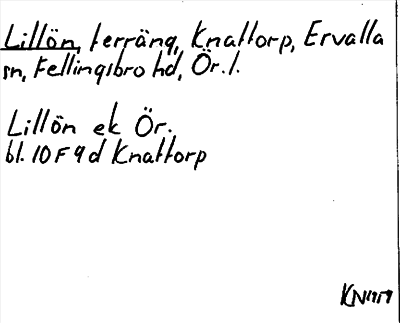 Lillön, terräng, Knattorp, Ervalla
sn, Fellingsbro hd, Ör. l.
Lillön ek Ör.
bl. 10 F 9 d Knattorp
KN 1959